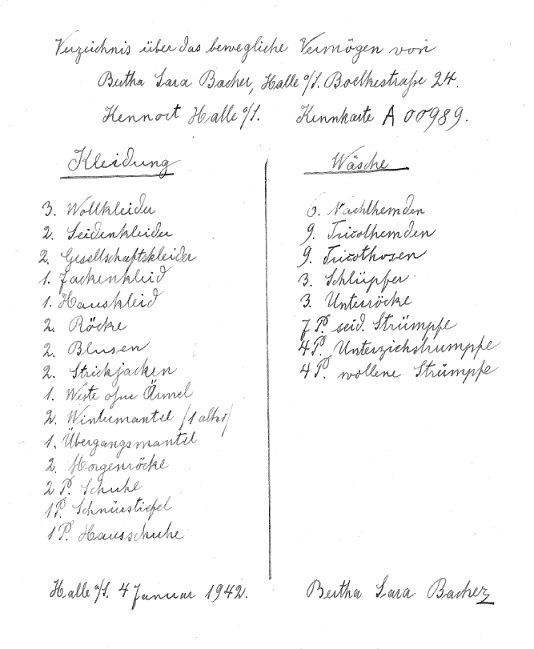 Verzeichnis über das bewegliche Vermögen von
Bertha Sara Bacher, Halle a/S. Boelkestraße 24.
Kennort Halle a/S. Kennkarte A 00989.
Kleidung
3. Wollkleider
2. Seidenkleider
2. Gesellschaftskleider
1. Jackenkleid
1. Hauskleid
2. Röcke
2. Blusen
2. Strickjacken
1. Weste ohne Ärmel
2. Wintermantel (1 alter)
1. Übergangsmantel
2. Morgenröcke
2 P. Schuhe
1 P. Schnürstiefel
1 P. Hausschuhe
Wäsche
6. Nachthemden
9. Tricothemden
9. Tricothosen
3. Schlüpfer
3. Unterröcke
7 P. seid. Strümpfe
4 P. Unterziehstrümpfe
4 P. wollene Strümpfe
Halle a/S. 4 Januar 1942.
Bertha Sara Bacher